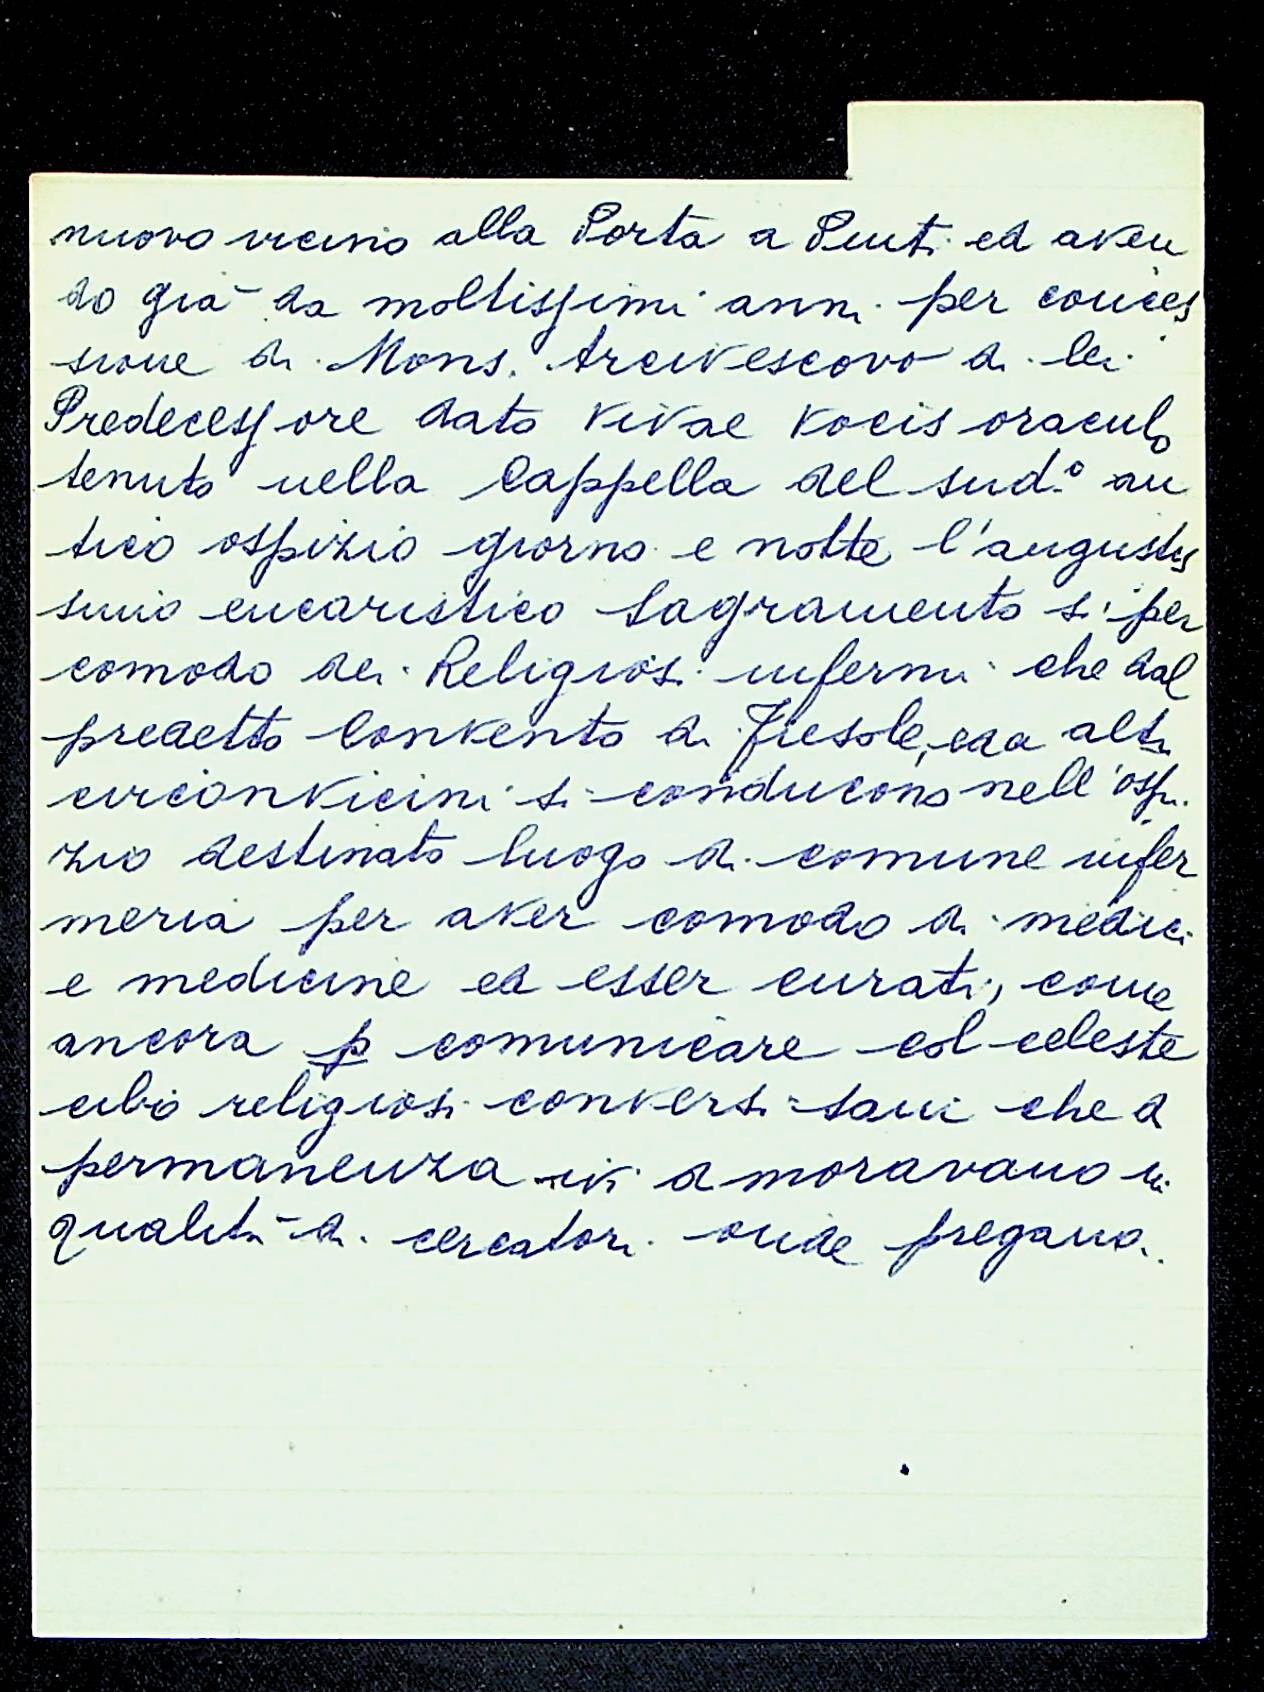 nuovo vicino alla Porta a Pinti ed aven
do già da moltissimi anni per conces
sione di Mons. Arcivescovo di lei
Predecessore dato vivae vocis oraculo
tenuto nella Cappella del sud.º an
tico ospizio giorno e notte l'augustis
simo eucaristico Sagramento sì per
comodo dei Religiosi infermi che dal
predetto Convento di Fiesole, ed a altri
circonvicini si conducono nell'ospi
zio destinato luogo di comune infer
meria per aver comodo di medici
e medicine ed esser curati, come
ancora p comunicare col celeste
cibo religiosi conversi sani che a
permanenza ivi dimoravano in
qualità di cercatori onde pregano.